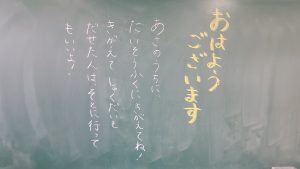 おはよう
ございます
あさのうちに、
たいそうふくにきがえてね！
きがえて しゅくだいも
だせた人は、そとに行って
もいいよ！